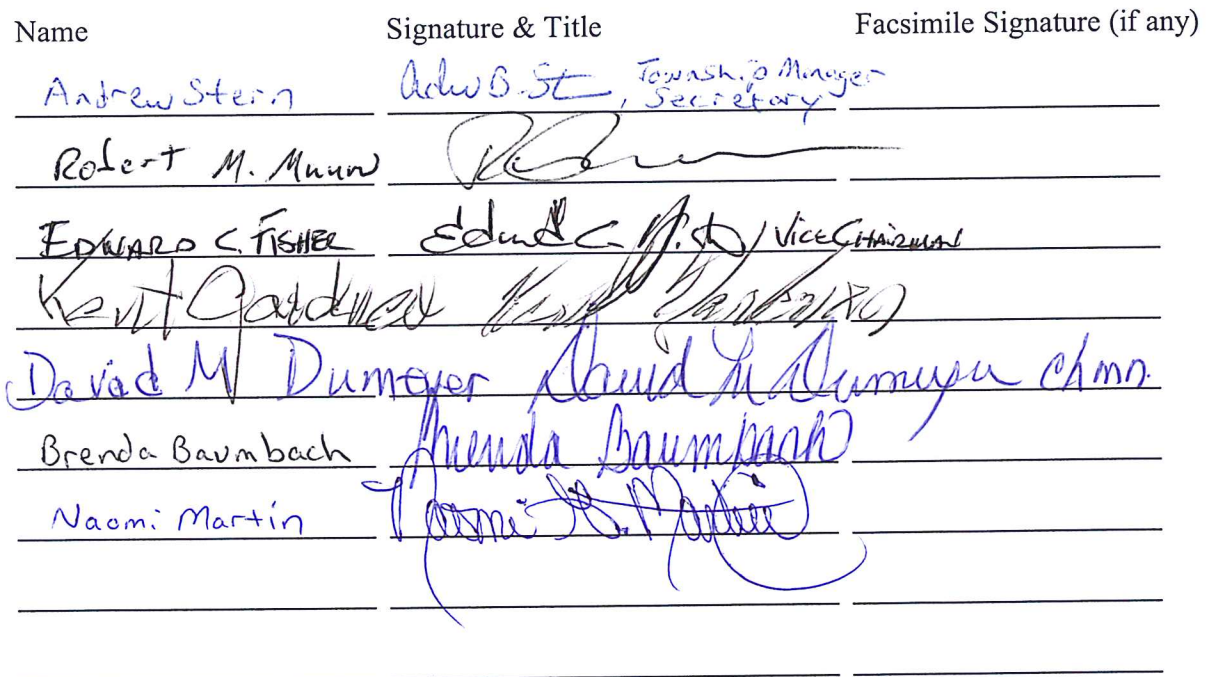 Name Signature & Title Facsimile Signature (if any)
Andrew Stern Township Manager
Secretary
Robert M.
EDWARD C. FISHER / VICE CHAIRMAN
Kent Gardner
David M Dumeyer David M Dumeyer Chmn.
Brenda Baumbach Brenda Baumbach
Naomi Martin Naomi G. Martin